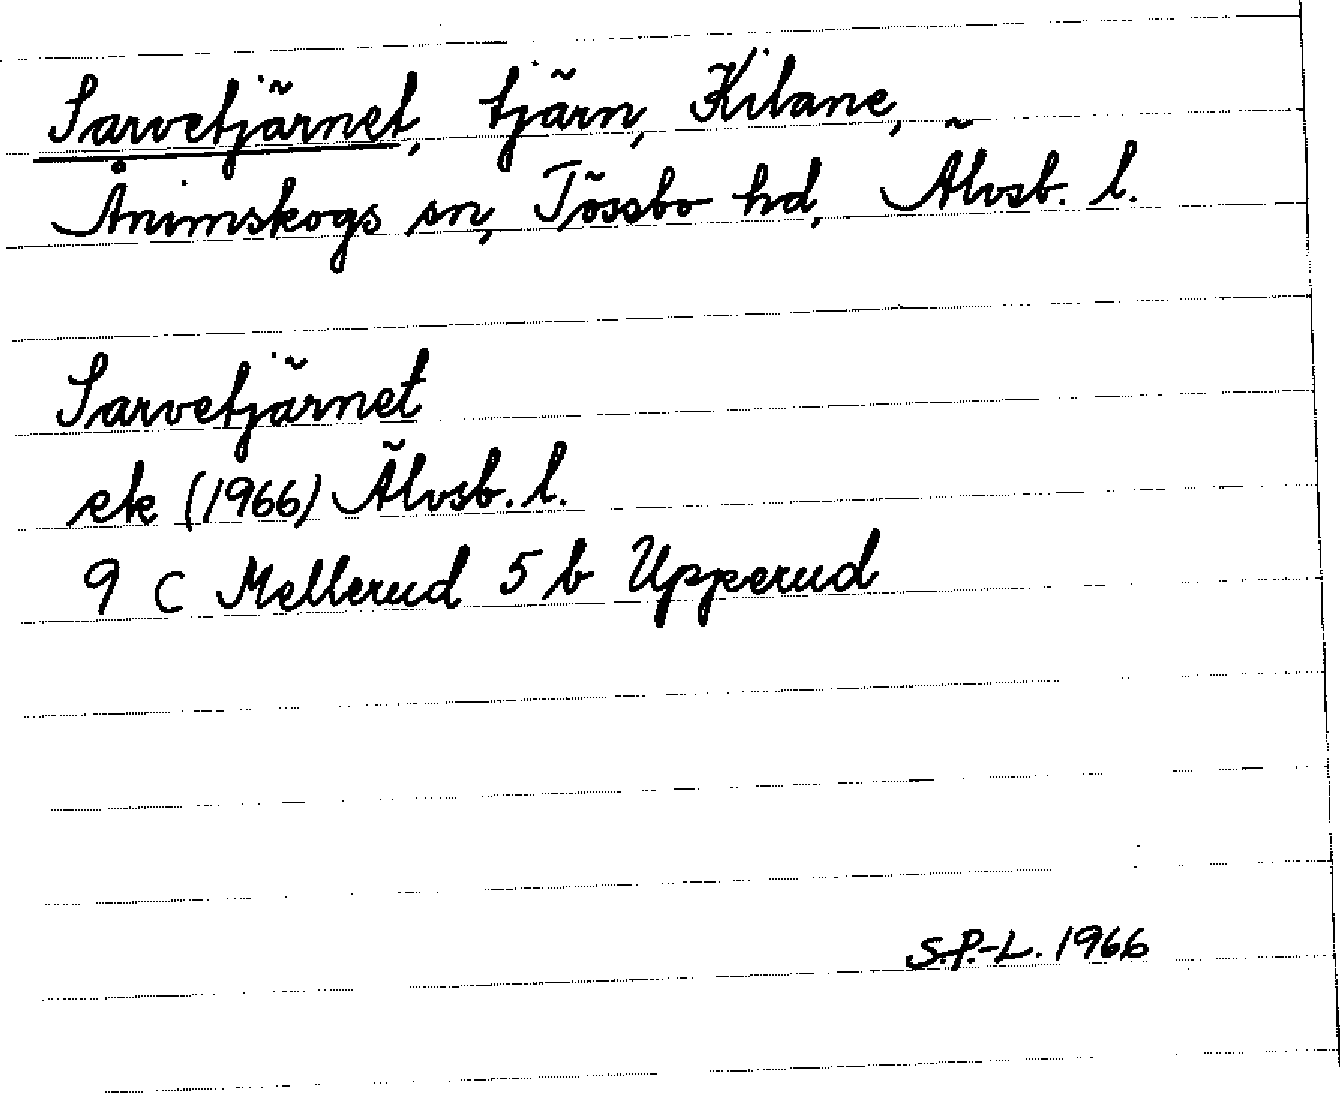 Sarvetjärnet, tjärn, Kilane,
Ånimskogs sn, Tössbo hd, Älvsb. l.
Sarvetjärnet
ek (1966) Älvsb. l.
9 C Mellerud 5 b Upperud
S.P.-L. 1966